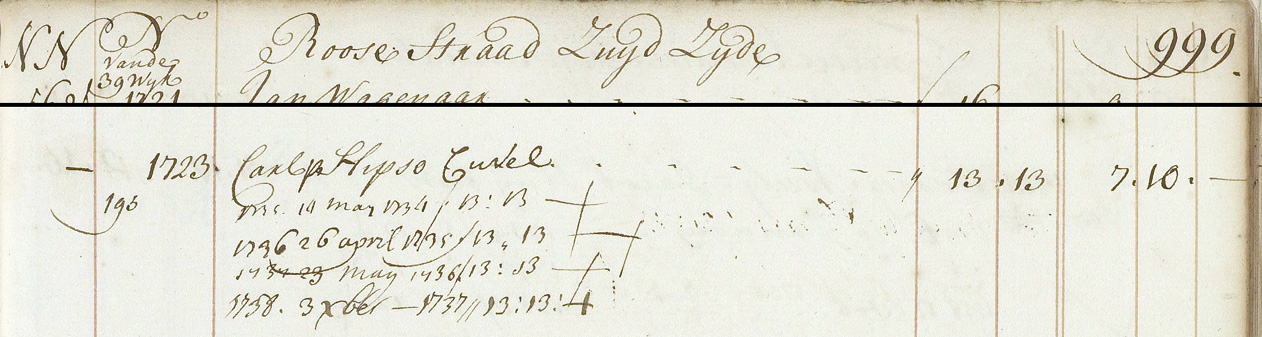 NN No Roose Straad Zuyd Zyde 999.
vande
39 Wyk
1721 Jan Wagenaar 16
— 1723. Carl Stipso 13 . 13 7. 10. —
195
14 may 1734 / 13 : 13
1736 26 april 1735 / 13 „ 13
may 1736 / 13 : 13
1738. 3 xber — 1737 // 13 : 13 :